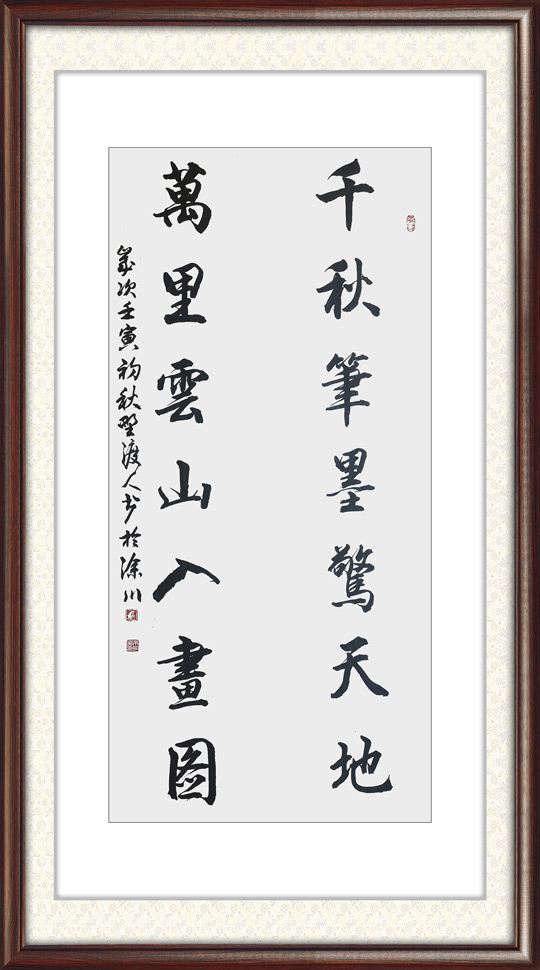 千秋筆墨驚天地
萬里雲山入畫圖
歲次壬寅初秋野渡人书於滁川